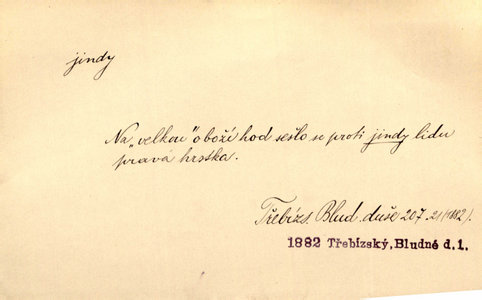 jindy
Na „velkou" o boží hod sešlo se proti jindy lidu
pravá hrstka.
Třebízs. Blud. duše 207. 21 (1882).
1882 Třebízský, Bludné d. 1.